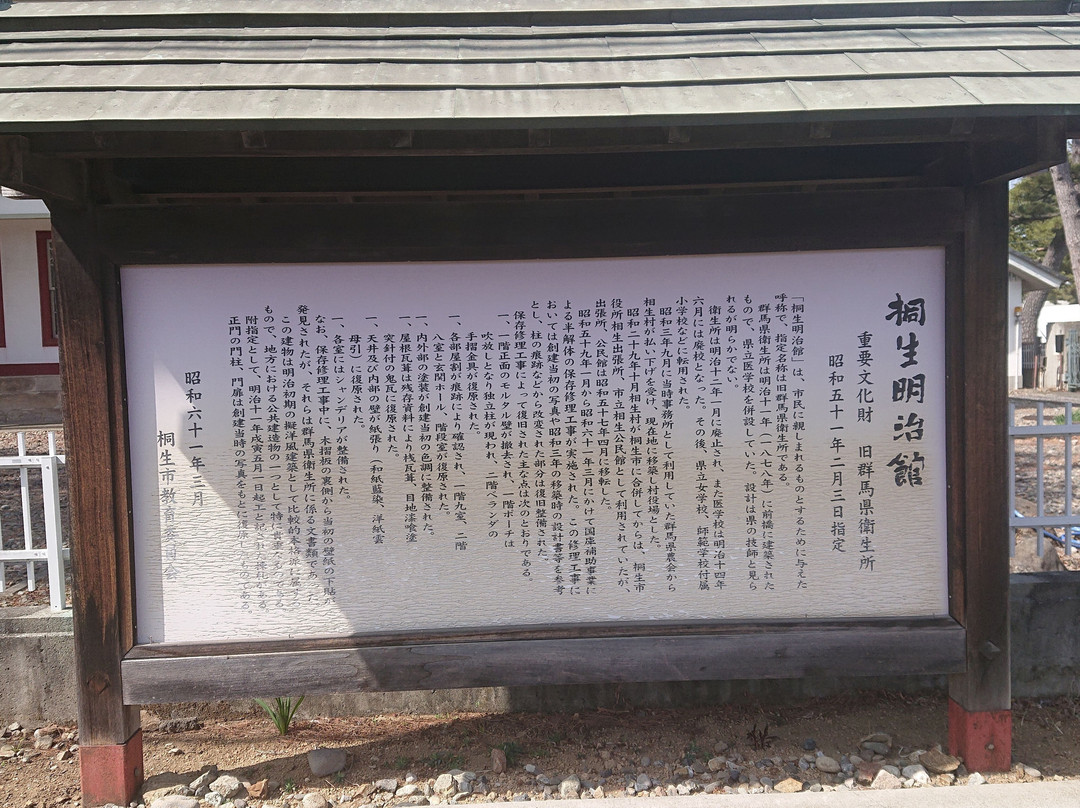 桐生明治館
重要文化財　旧群馬県衛生所
昭和五十一年二月三日指定
「桐生明治館」は、市民に親しまれるものとするために与えた
呼称で、指定名称は旧群馬県衛生所である。
群馬県衛生所は明治十一年（一八七八年）に前橋に建築された
もので、県立医学校を併設していた。設計は県の技師と見ら
れるが明らかでない。
衛生所は明治十二年一月に廃され、また医学校は明治十四年
六月には廃校となった。その後、県立女学校、師範学校付属
小学校などに転用された。
昭和三年九月に当時事務所として利用していた群馬県農会から
相生村が払い下げを受け、現在地に移築し村役場とした。
昭和二十九年十月相生村が桐生市に合併してからは、桐生市
役所相生出張所、市立相生公民館として利用されていたが、
出張所、公民館は昭和五十七年四月に移転した。
昭和五十九年一月から昭和六十一年三月にかけて国庫補助事業に
よる半解体の保存修理工事が実施された。この修理工事に
おいては創建当初の写真や昭和三年の移築時の設計書等を参考
とし、柱の痕跡などから改変された部分は復旧整備された。
保存修理工事によって復旧された主な点は次のとおりである。
一、一階正面のモルタル壁が撤去され、一階ポーチは
吹放しとなり独立柱が現われ、二階ベランダの
手摺金具が復原された。
一、各部屋割が痕跡により確認され、一階九室、二階
八室と玄関ホール、階段室が復原された。
一、内外部の塗装が創建当初の色調に整備された。
一、屋根瓦葺は残存資料により桟瓦葺、目地漆喰塗
突針付の鬼瓦に復原された。
一、天井及び内部の壁が紙張り（和紙藍染、洋紙雲
母引）に復原された。
一、各室にはシャンデリアが整備された。
なお、保存修理工事中に、木摺板の裏側から当初の壁紙の下貼が
発見されたが、それらは群馬県衛生所に係る文書類であった。
この建物は明治初期の擬洋風建築として比較的本格派に属する
もので、地方における公共建造物の一つとして特に貴重なものである。
附指定として、明治十一年戊寅五月一日起工と記された棟札がある。
正門の門柱、門扉は創建当時の写真をもとに復原したものである。
昭和六十一年三月
桐生市教育委員会